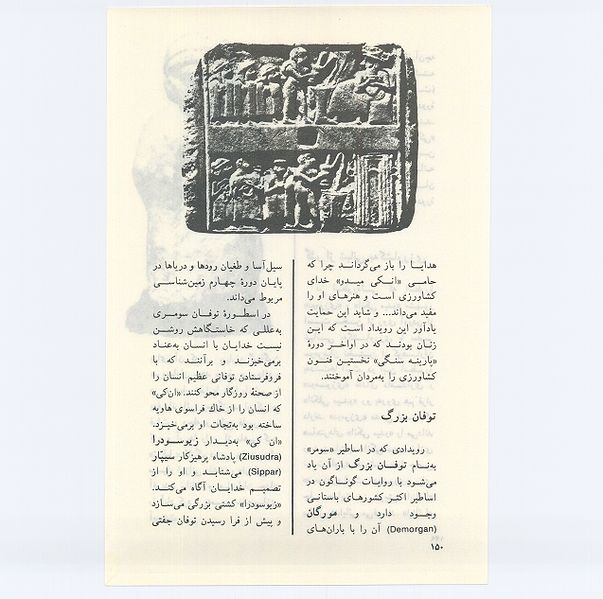 هدایا را باز می‌گرداند چرا که
حامی «انکی میدو» خدای
کشاورزی است و هنرهای او را
مفید می‌داند... و شاید این حمایت
یادآور این رویداد است که این
زنان بودند که در اواخر دورهٔ
«پارینه سنگی» نخستین فنون
کشاورزی را به‌مردان آموختند.
توفان بزرگ
رویدادی که در اساطیر «سومر»
به‌نام توفان بزرگ از آن یاد
می‌شود با روایات گوناگون در
اساطیر اکثر کشورهای باستانی
وجود دارد و مورگان
(Demorgan) آن را با باران‌های
سیل‌آسا و طغیان رودها و دریاها در
پایان دورهٔ چهارم زمین‌شناسی
مربوط می‌داند.
در اسطورهٔ توفان سومری
به‌عللی که خاستگاهش روشن
نیست خدایان با انسان به‌عناد
برمی‌خیزند و برآنند که با
فروفرستادن توفانی عظیم انسان را
از صحنهٔ روزگار محو کنند. «ان‌کی»
که انسان را از خاك فراسوی هاویه
ساخته بود به‌نجات او برمی‌خیزد.
«ان کی» به‌دیدار زیوسودرا
(Ziusudra) پادشاه پرهیزکار سیپار
(Sippar) می‌شتابد و او را از
تصمیم خدایان آگاه می‌کند.
«زیوسودرا» کشتی بزرگی می‌سازد
و پیش از فرا رسیدن توفان جفتی
۱۵۰